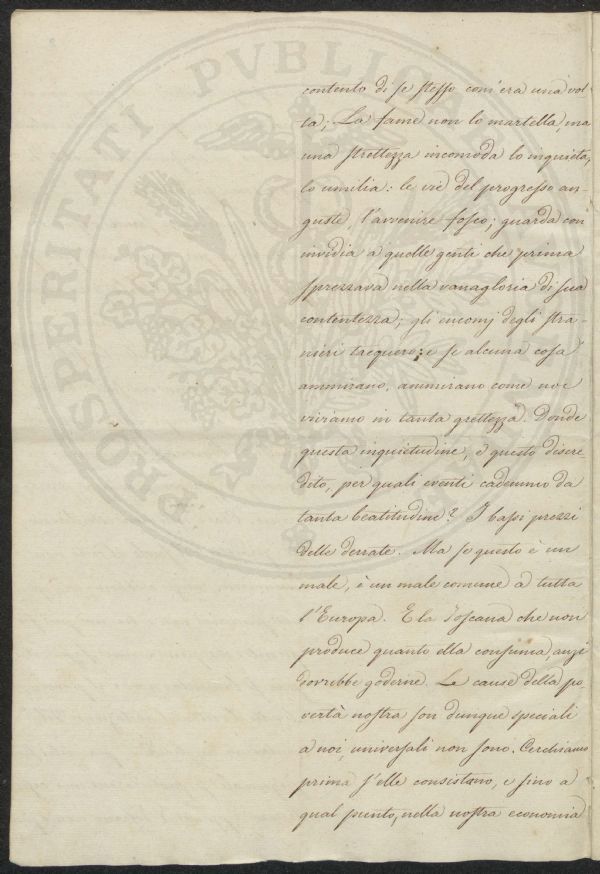 PROSPERITATI PVBLICAE
contento di se stesso com'era una vol-
ta; La fame non lo martella, ma
una strettezza incomoda lo inquieta,
lo umilia: le vie del progresso an-
guste, l'avvenire fosco; guarda con
invidia a quelle genti che prima
sprezzava nella vanagloria di sua
contentezza; gli encomj degli stra-
nieri tacquero; e se alcuna cosa
ammirano, ammirano come noi
viviamo in tanta grettezza. Donde
questa inquietudine, e questo discre-
dito, per quali eventi cademmo da
tanta beatitudine? I bassi prezzi
delle derrate. Ma se questo è un
male, è un male comune a tutta
l'Europa. E la Toscana che non
produce quanto ella consuma, anzi
dovrebbe goderne. Le cause della po-
vertà nostra son dunque speciali
a noi, universali non sono. Cerchiamo
prima s'elle consistano, e sino a
qual punto, nella nostra economia